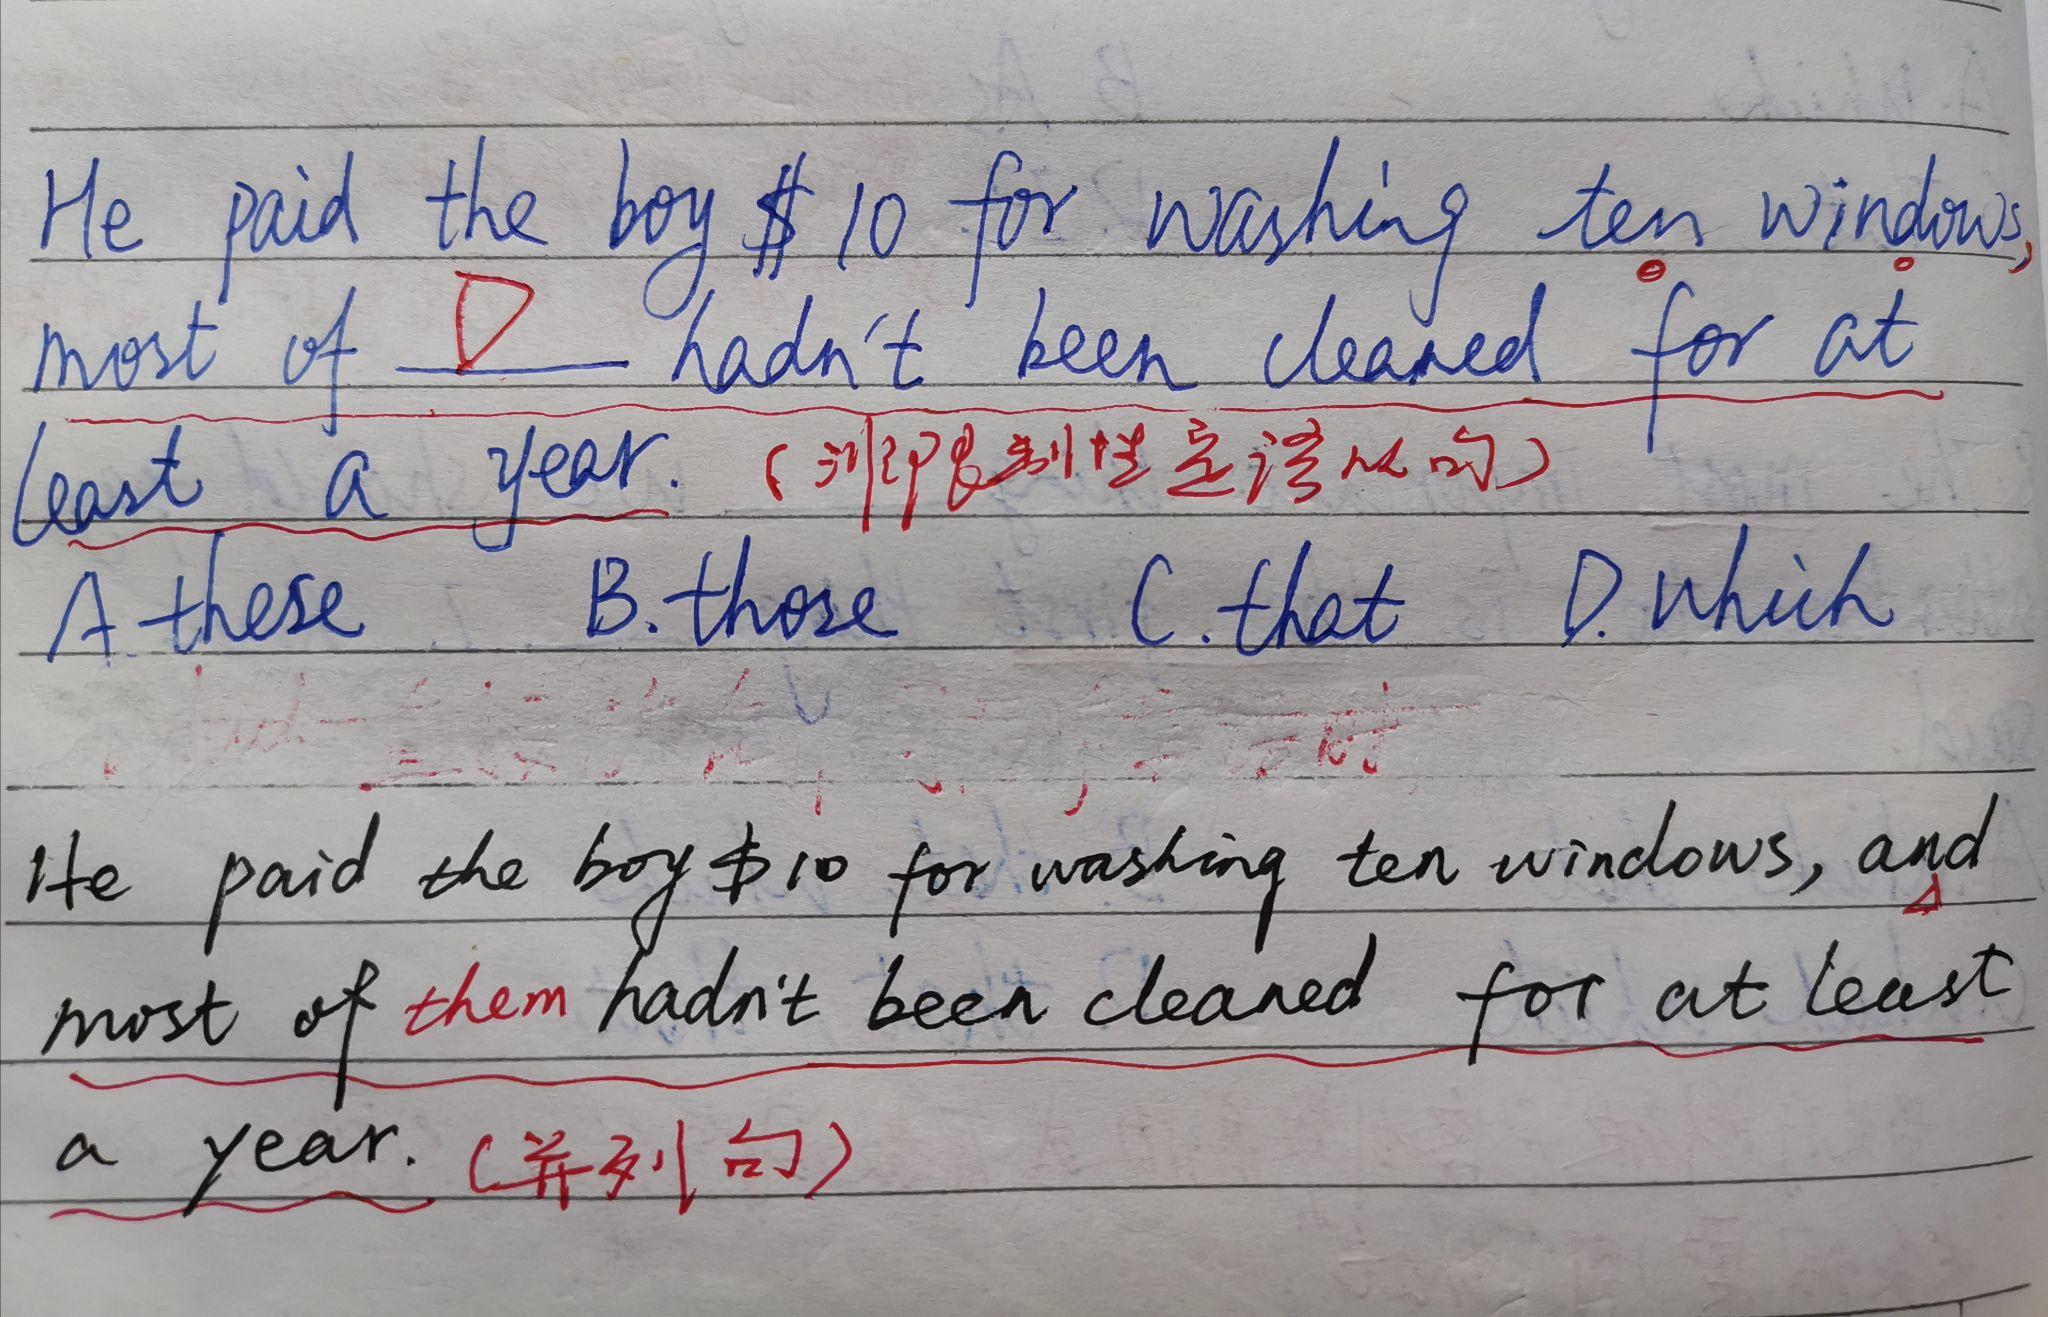 He paid the boy $10 for washing ten windows,
most of D hadn't been cleaned for at
least a year. (非限制性定语从句)
A. these B. those C. that D. which
He paid the boy $10 for washing ten windows, and
most of them hadn't been cleaned for at least
a year. (并列句)